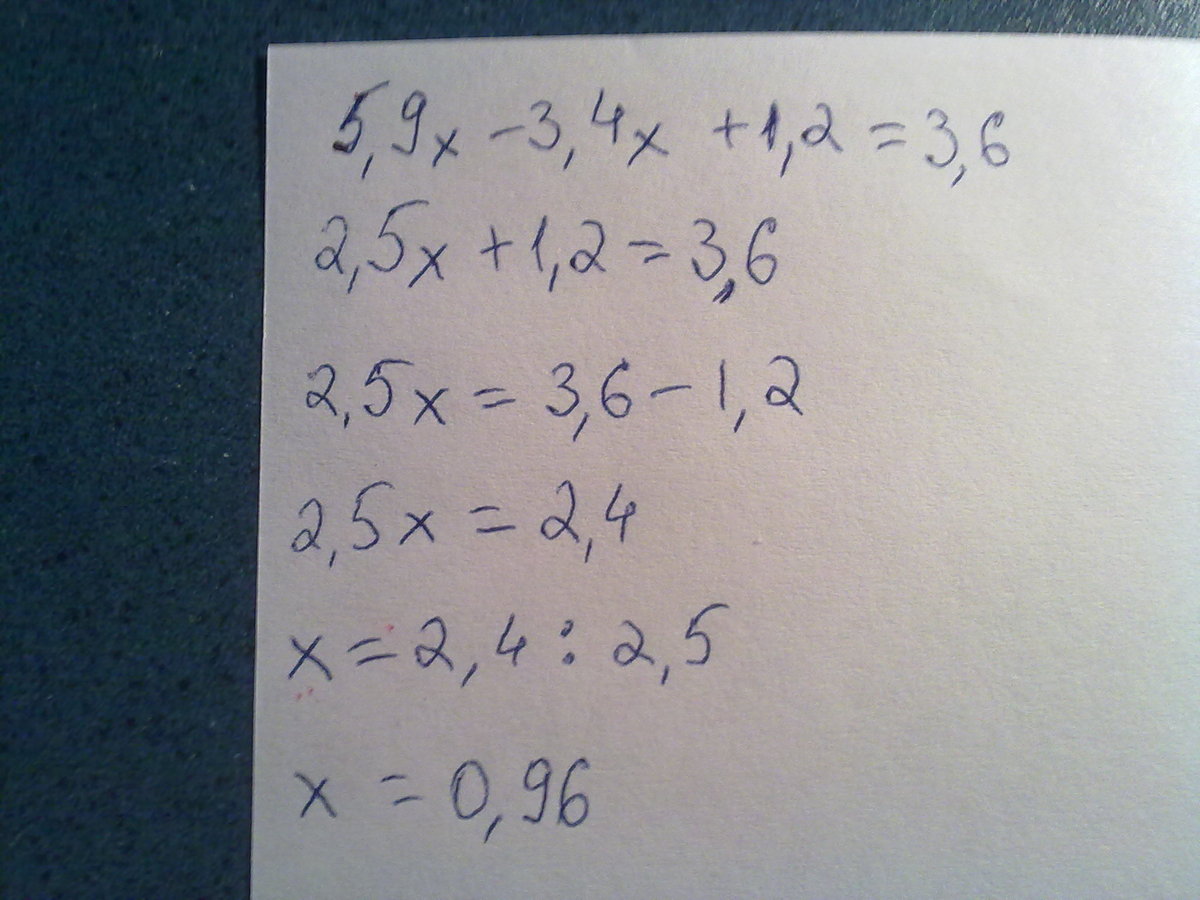 5,9x - 3,4x + 1,2 = 3,6
2,5x + 1,2 = 3,6
2,5x = 3,6 - 1,2
2,5x = 2,4
x = 2,4 : 2,5
x = 0,96